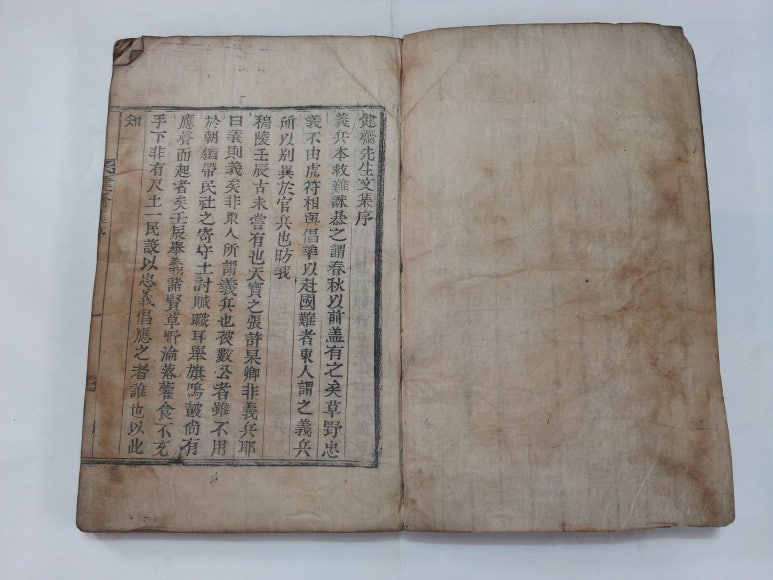 健齋先生文集序
義兵本救難誅㬥之謂春秋以前盖有之矣草野忠
義不由虎符相與倡率以赴國難者東人謂之義兵
所以別異於官兵也昉我
穆陵壬辰古未嘗有也天寶之張許杲卿非義兵耶
曰義則義矣非東人所謂義兵也彼數公者雖不用
於朝猶帶民社之寄守土討賊職耳舉旗鳴皷尙有
應聲而起者矣壬辰舉義諸賢草野淪落藿食不充
手下非有尺土一民設以忠義倡應之者誰也以此
知